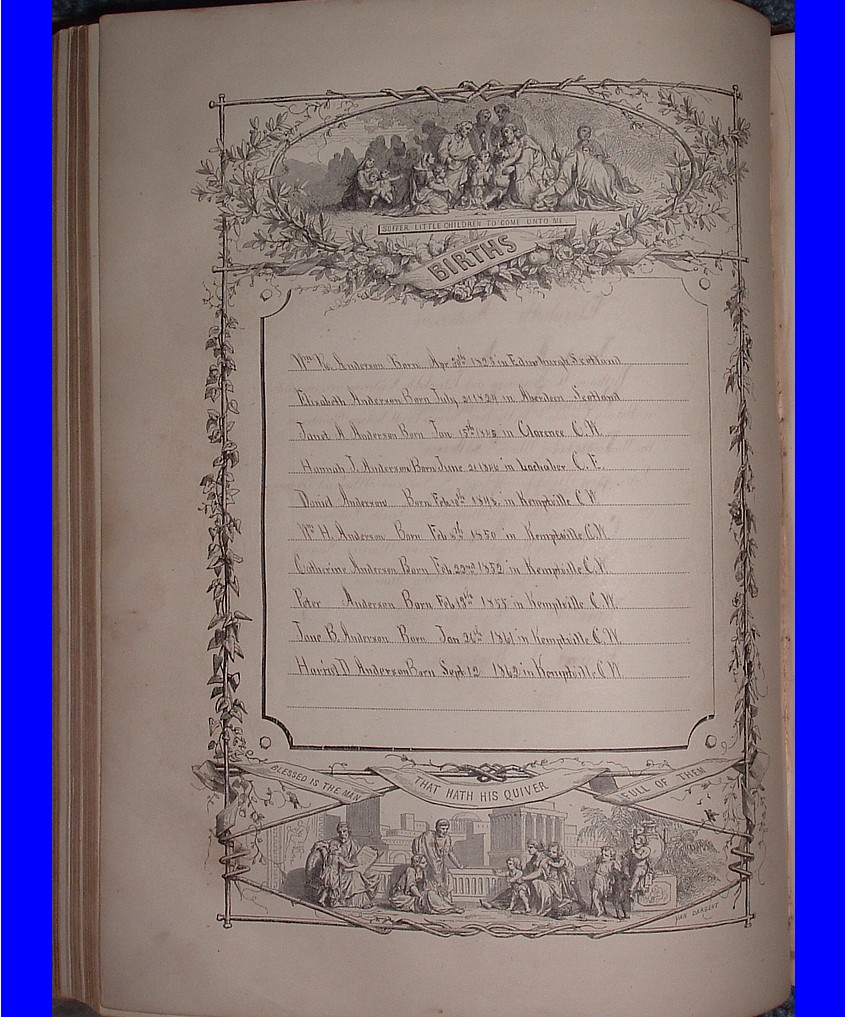 SUFFER LITTLE CHILDREN TO COME UNTO ME
BIRTHS
Wm Anderson Born Apr in Edinburgh Scotland
Elizabeth Anderson Born July 1824 in Aberdeen Scotland
Janet A Anderson Born Jan 15th in Clarence C.W.
Hannah J. Anderson Born June 21 in Lochaber C.E.
Daniel Anderson Born Feb in Kemptville C W
Wm H. Anderson Born Feb 1850 in Kemptville C.W.
Catherine Anderson Born Feb 22nd 1852 in Kemptville C.W.
Peter Anderson Born Feb 1855 in Kemptville C.W.
Jane B. Anderson Born Jan 26th 1861 in Kemptville C.W.
Harriet D Anderson Born Sept 12 1862 in Kemptville C.W.
BLESSED IS THE MAN THAT HATH HIS QUIVER FULL OF THEM
YAN DARGENT